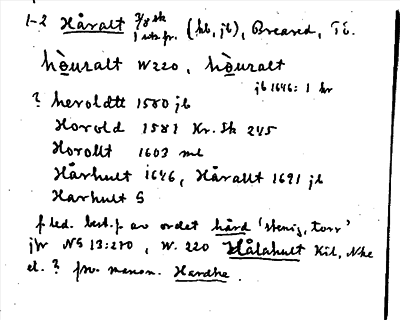 1-2 Håralt 3/8 sk (hb, jb), Breared, Tö.
1 utx fr.
hèuralt W220, hèuralt
jb 1646: 1 kr
? heroldtt 1580 jb
Horold 1581 Kr. Sk 245
Horollt 1603 ml
Hårhult 1646, Hårallt 1691 jb
Harhult S
f led. best. f av ordet hård 'stenig, torr'
jfr NG 13:270, W. 220 Hålahult Kil, Nke
el. ? fsv. mansn. Hardhe.